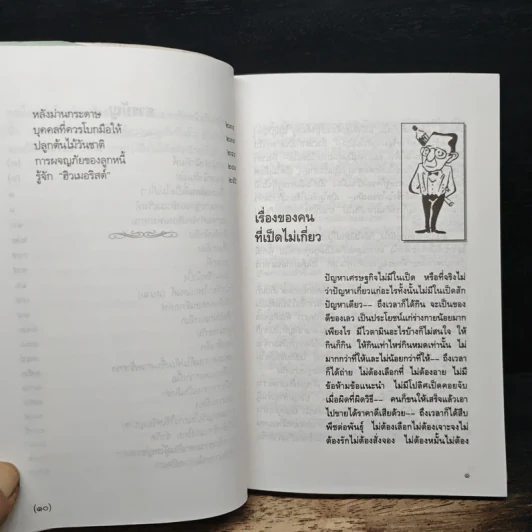 หลังม่านกระดาษ
บุคคลที่ควรโบกมือให้
ปลูกต้นไม้วันชาติ
การผจญภัยของลูกหนี้
รู้จัก "ฮิวเมอริสต์"
(๑๐)
เรื่องของคน
ที่เป็ดไม่เกี่ยว
ปัญหาเศรษฐกิจไม่มีในเป็ด หรือที่จริงไม่
ว่าปัญหาเกี่ยวแก่อะไรทั้งนั้นไม่มีในเป็ดสัก
ปัญหาเดียว-- ถึงเวลาก็ได้กิน จะเป็นของ
ดีของเลว เป็นประโยชน์แก่ร่างกายน้อยมาก
เพียงไร มีไวตามินอะไรบ้างก็ไม่สนใจ ให้
กินก็กิน ให้กินเท่าไหร่กินหมดเท่านั้น ไม่
มากกว่าที่ให้และไม่น้อยกว่าที่ให้-- ถึงเวลา
ก็ได้ถ่าย ไม่ต้องเลือกที่ ไม่ต้องอาย ไม่มี
ข้อห้ามข้อแนะนำ ไม่มีโปลิศเป็ดคอยจับ
เมื่อผิดที่ผิดวิธี-- คนก็ขนให้เสร็จแล้วเอา
ไปขายได้ราคาดีเสียด้วย-- ถึงเวลาก็ได้สืบ
พืชต่อพันธุ์ ไม่ต้องเลือกไม่ต้องเจาะจงไม่
ต้องรักไม่ต้องสั่งจอง ไม่ต้องหมั้นไม่ต้อง
๑